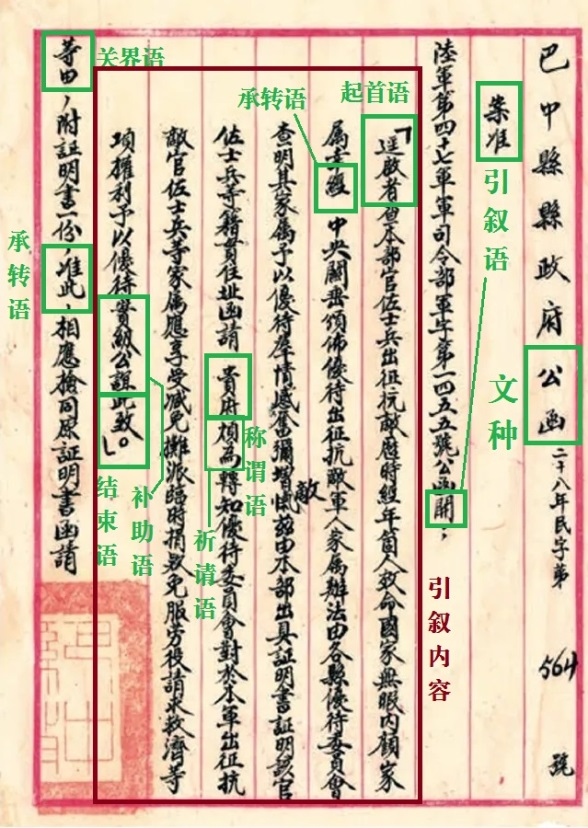 巴中縣縣政府公函二十八年民字第564號
文种
案准
引叙语
陸軍第四十七軍軍司令部軍字第一四五五號公函開：
引叙内容
起首语
「逕啟者查本部官佐士兵出征抗敵歷時經年箇人致命國家無暇內顧家
承转语
属幸經 中央關垂頒佈優待出征抗敵軍人家属辦法由各縣優待委員會
查明其家属予以優待羣情感奮彌增愾敵茲由本部出具証明書証明該官
佐士兵等籍貫住址函請 貴府煩為轉知優待委員會對於本軍出征抗
称谓语
祈请语
敵官佐士兵等家属應享受減免攤派臨時捐欵免服劳役請求救濟等
补助语
項權利予以優待實紉公誼此致。」
结束语
关界语
等由，附証明書一份，准此，相應檢同原証明書函請
承转语